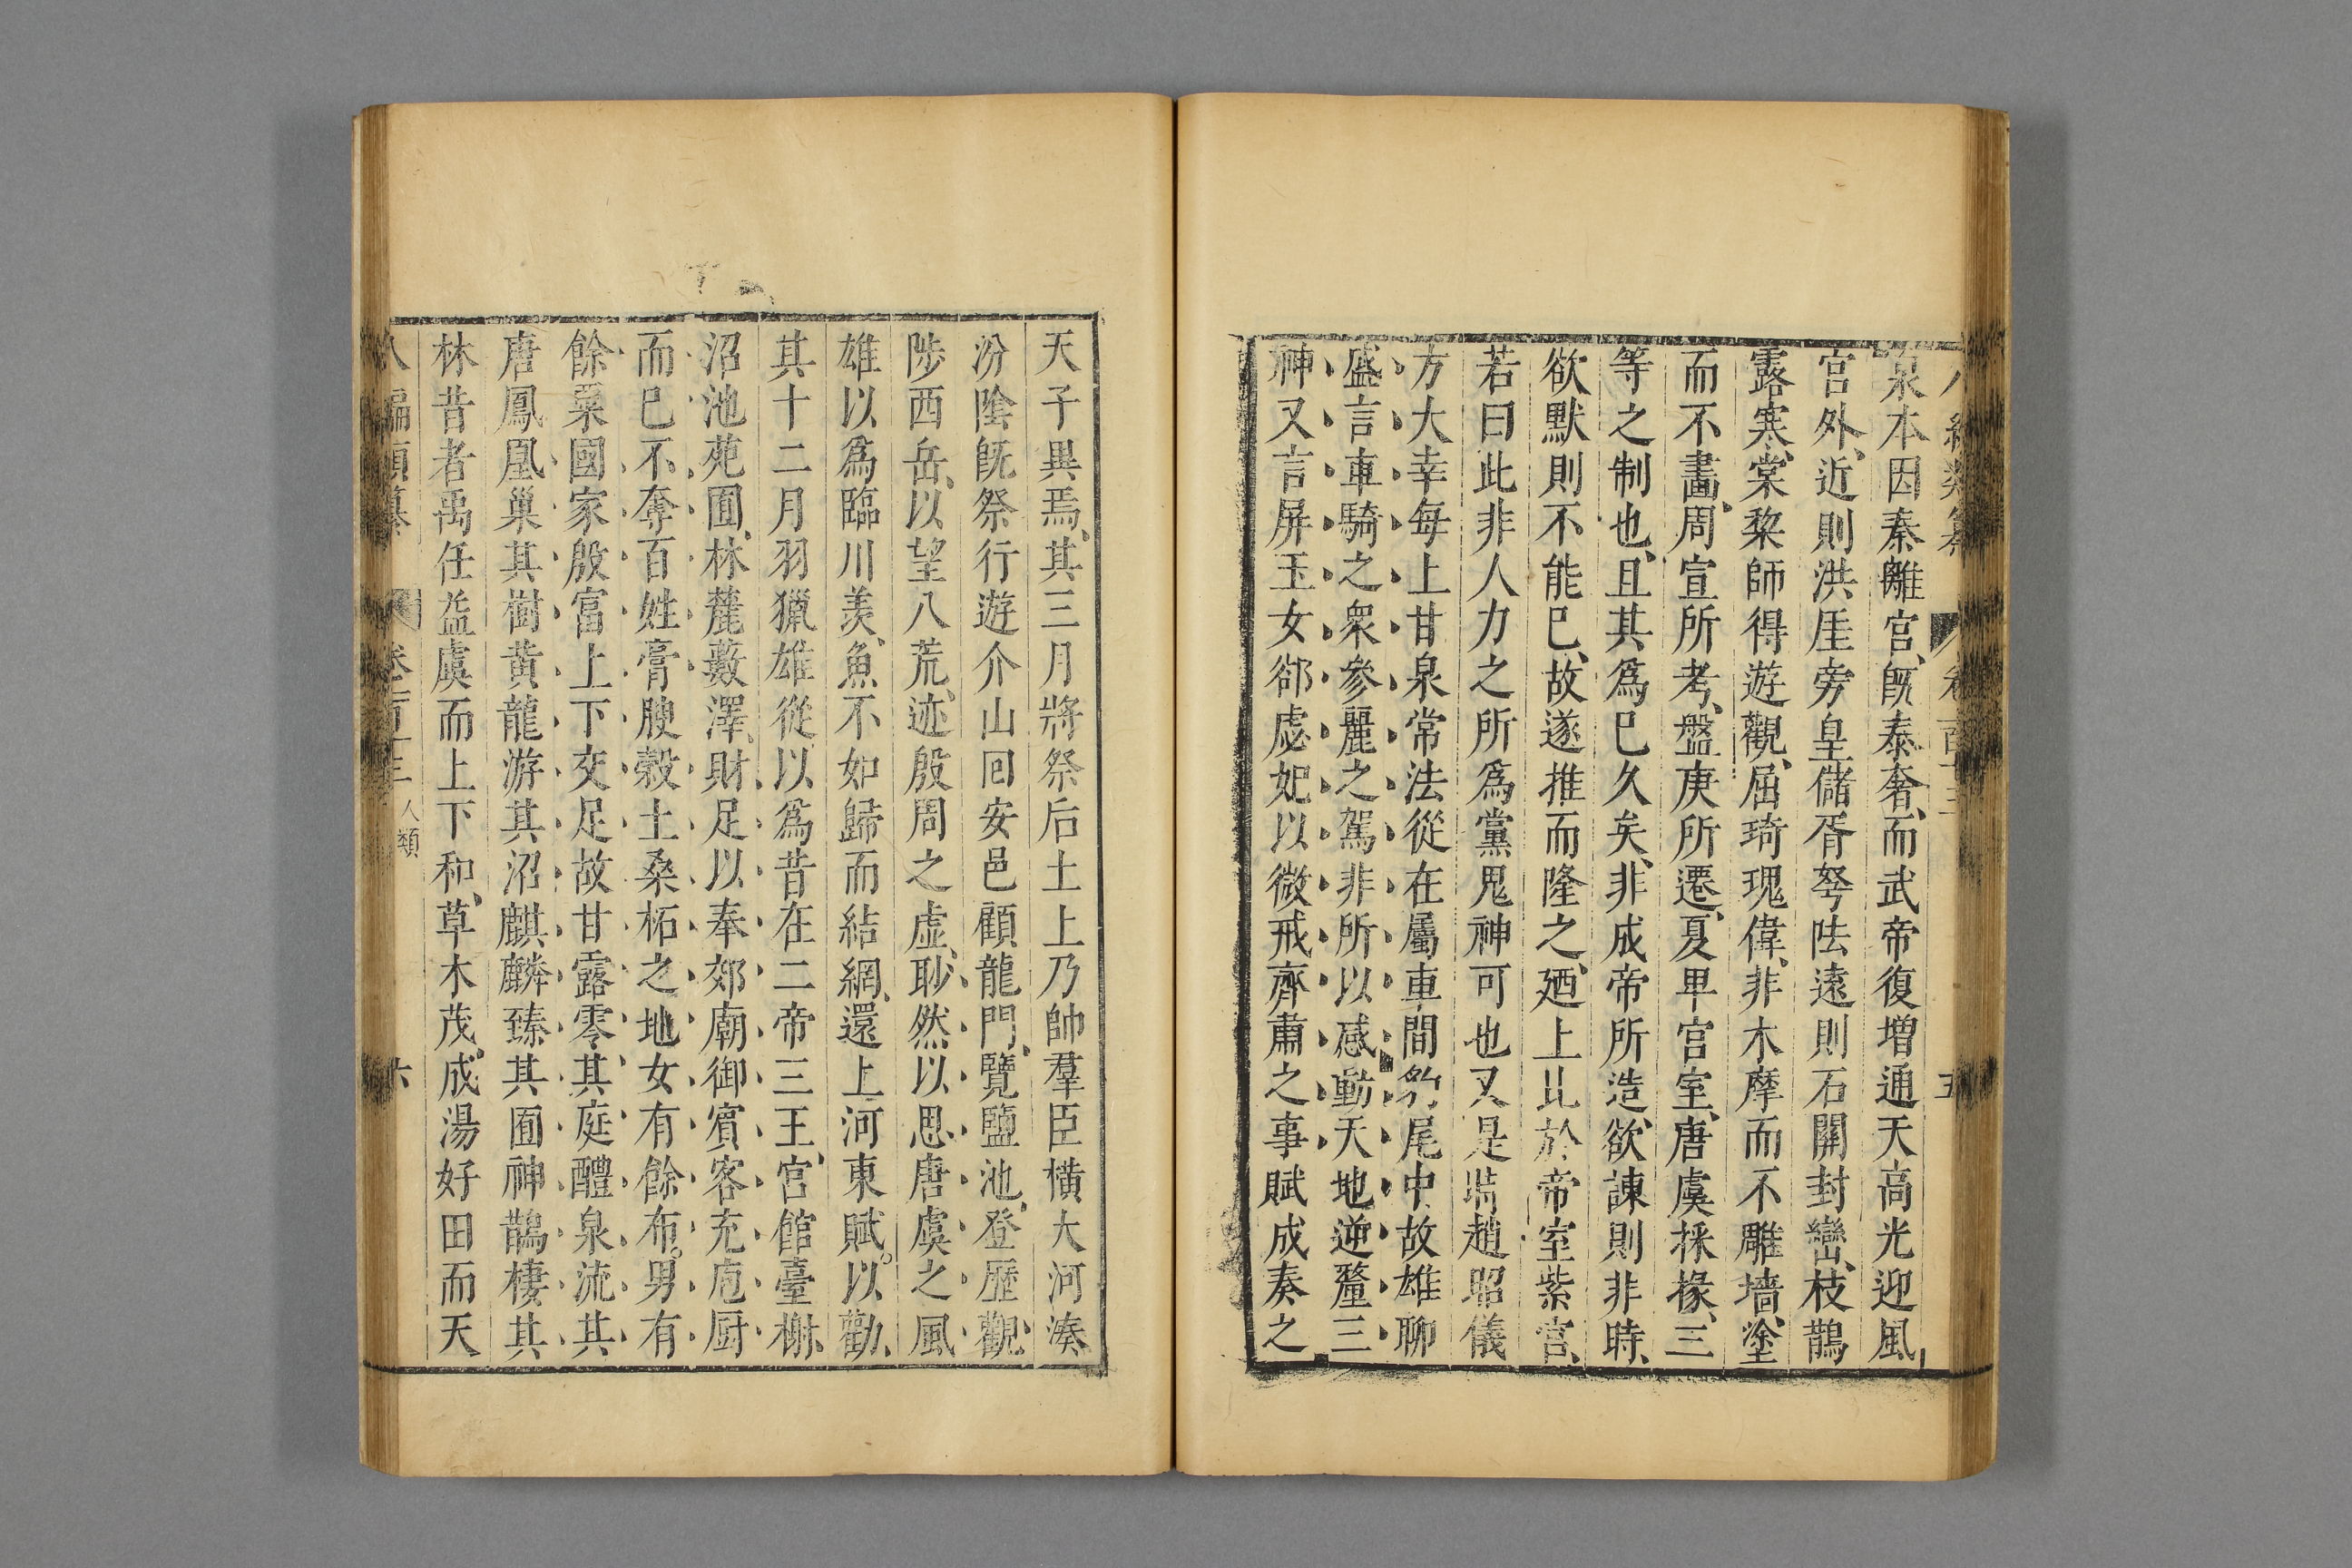 泉本因秦離宮、旣泰奢、而武帝復増通天高光迎風
宮外、近則洪厓旁皇儲胥弩阹遠則石關封巒、枝鵲
露寒、棠棃師得遊觀、屈琦瑰偉、非木摩而不雕墻、塗
而不畵、周宣所考、盤庚所遷、夏卑宮室、唐虞採椽、三
等之制也、且其爲巳久矣、非成帝所造、欲諫則非時、
欲默則不能巳、故遂推而隆之、廼上比於帝室紫宮、
若曰此非人力之所爲黨鬼神可也又是時趙昭儀
方大幸每上甘泉常法從在屬車間豹尾中故雄聊
盛言車騎之衆參麗之駕非所以感動天地逆釐三
神又言屏玉女卻虙妃以微戒齊肅之事賦成奏之
天子異焉、其三月將祭后土上乃帥羣臣橫大河湊
汾隂旣祭行遊介山囘安邑顧龍門、覽鹽池、登歷觀、
陟西岳、以望八荒、迹殷周之虛、眇然以思唐虞之風
雄以爲臨川羨魚不如歸而結網、還上河東賦。以勸、
其十二月羽獵雄從以爲昔在二帝三王、宮館臺榭、
沼池苑囿、林麓藪澤、財足以奉郊廟御賓客充庖厨
而巳不奪百姓膏腴榖土桑柘之地女有餘布。男有
餘粟國家殷富上下交足故甘露零其庭醴泉流其
唐鳳凰巢其樹黃龍游其沼麒麟臻其囿神鵲棲其
林昔者禹任益虞而上下和、草木茂、成湯好田而天
八編類纂 卷百十三 人類 六